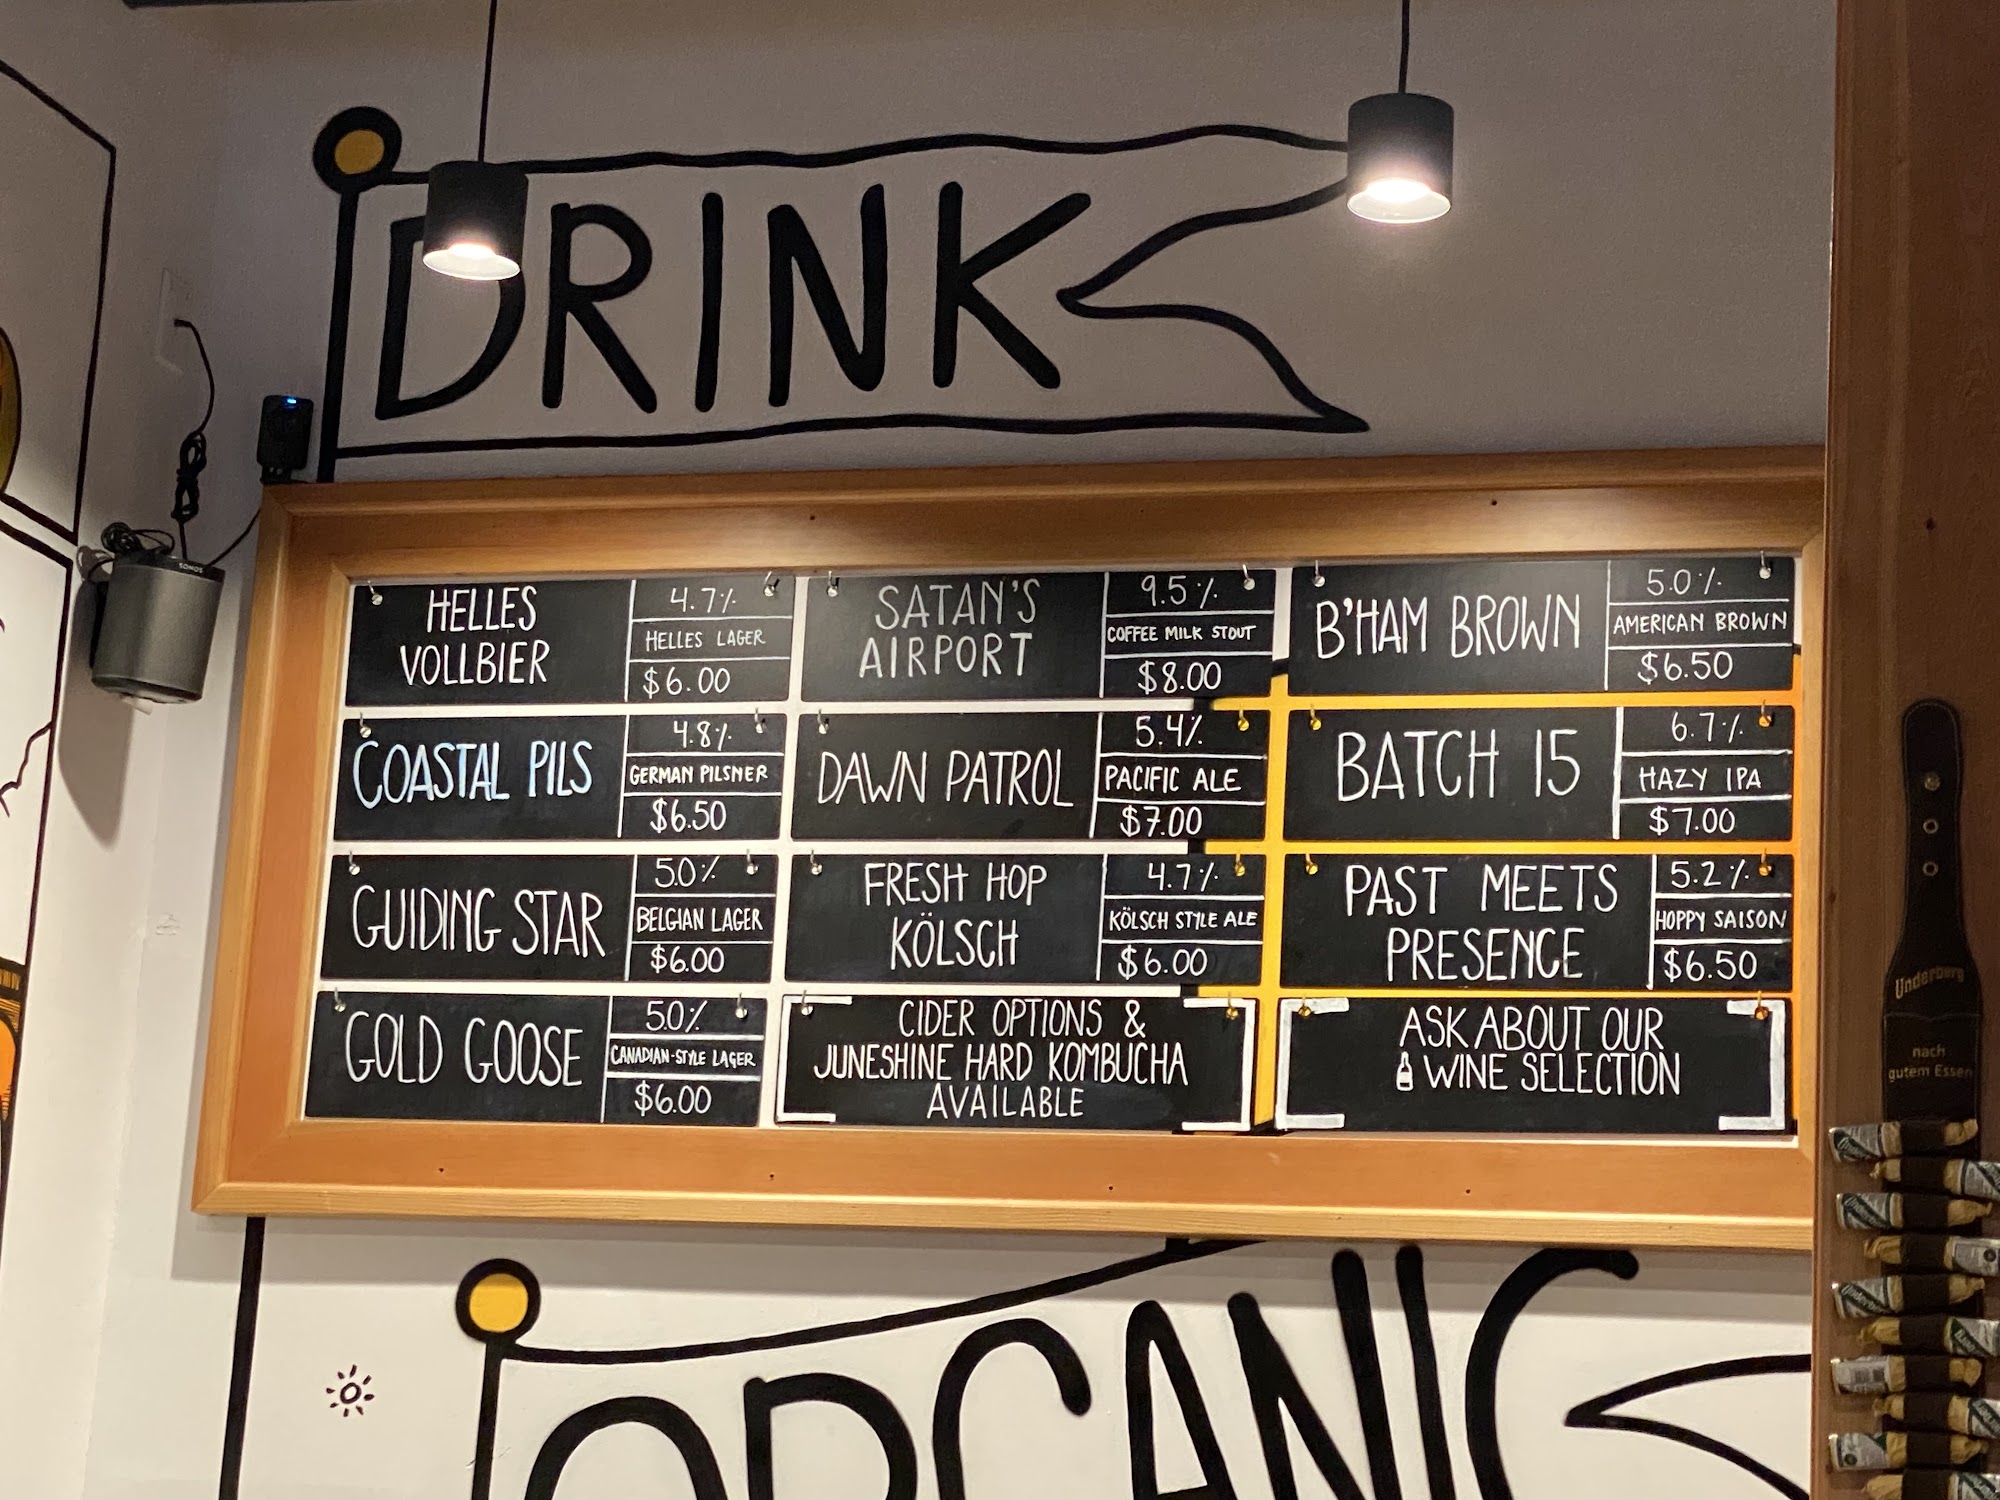 DRINK
SONOS
HELLES
VOLLBIER
4.7%
HELLES LAGER
$6.00
SATAN'S
AIRPORT
9.5%
COFFEE MILK STOUT
$8.00
B'HAM BROWN
5.0%
AMERICAN BROWN
$6.50
COASTAL PILS
4.8%
GERMAN PILSNER
$6.50
DAWN PATROL
5.4%
PACIFIC ALE
$7.00
BATCH 15
6.7%
HAZY IPA
$7.00
GUIDING STAR
5.0%
BELGIAN LAGER
$6.00
FRESH HOP
KÖLSCH
4.7%
KÖLSCH STYLE ALE
$6.00
PAST MEETS
PRESENCE
5.2%
HOPPY SAISON
$6.50
GOLD GOOSE
5.0%
CANADIAN-STYLE LAGER
$6.00
CIDER OPTIONS &
JUNESHINE HARD KOMBUCHA
AVAILABLE
ASK ABOUT OUR
WINE SELECTION
Underberg
nach
gutem Essen
ORGANIC